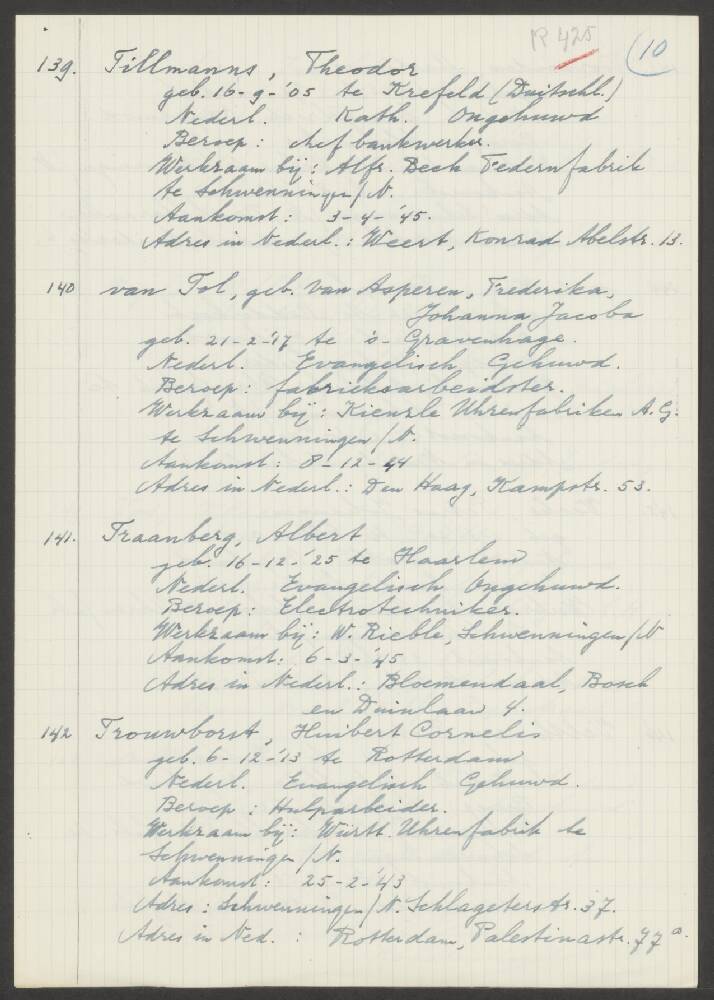 R 425
10
139. Tillmanns, Theodor
geb. 16-9-'05 te Krefeld (Duitschl.)
Nederl. Kath. Ongehuwd
Beroep: chef bankwerker.
Werkzaam bij: Alfr. Beck Federnfabrik
te Schwenningen/N.
Aankomst: 3-4-'45.
Adres in Nederl.: Weert, Konrad Abelstr. 13.
140 van Tol, geb. van Asperen, Frederika,
Johanna Jacoba
geb. 21-2-'17 te 's-Gravenhage.
Nederl. Evangelisch Gehuwd.
Beroep: fabrieksarbeidster.
Werkzaam bij: Kienzle Uhrenfabriken A.G.
te Schwenningen/N.
Aankomst: 8-12-44
Adres in Nederl.: Den Haag, Kampstr. 53.
141. Traanberg, Albert
geb. 16-12-'25 te Haarlem
Nederl. Evangelisch Ongehuwd.
Beroep: Electrotechniker.
Werkzaam bij: W. Rieble, Schwenningen/N
Aankomst: 6-3-'45
Adres in Nederl.: Bloemendaal, Bosch
en Duinlaan 4.
142 Trouwborst, Huibert Cornelis
geb. 6-12-'13 te Rotterdam
Nederl. Evangelisch Gehuwd.
Beroep: Hulparbeider.
Werkzaam bij: Württ. Uhrenfabrik te
Schwenningen/N.
Aankomst: 25-2-'43
Adres: Schwenningen/N. Schlageterstr. 37.
Adres in Ned.: Rotterdam, Palestinastr. 77a.